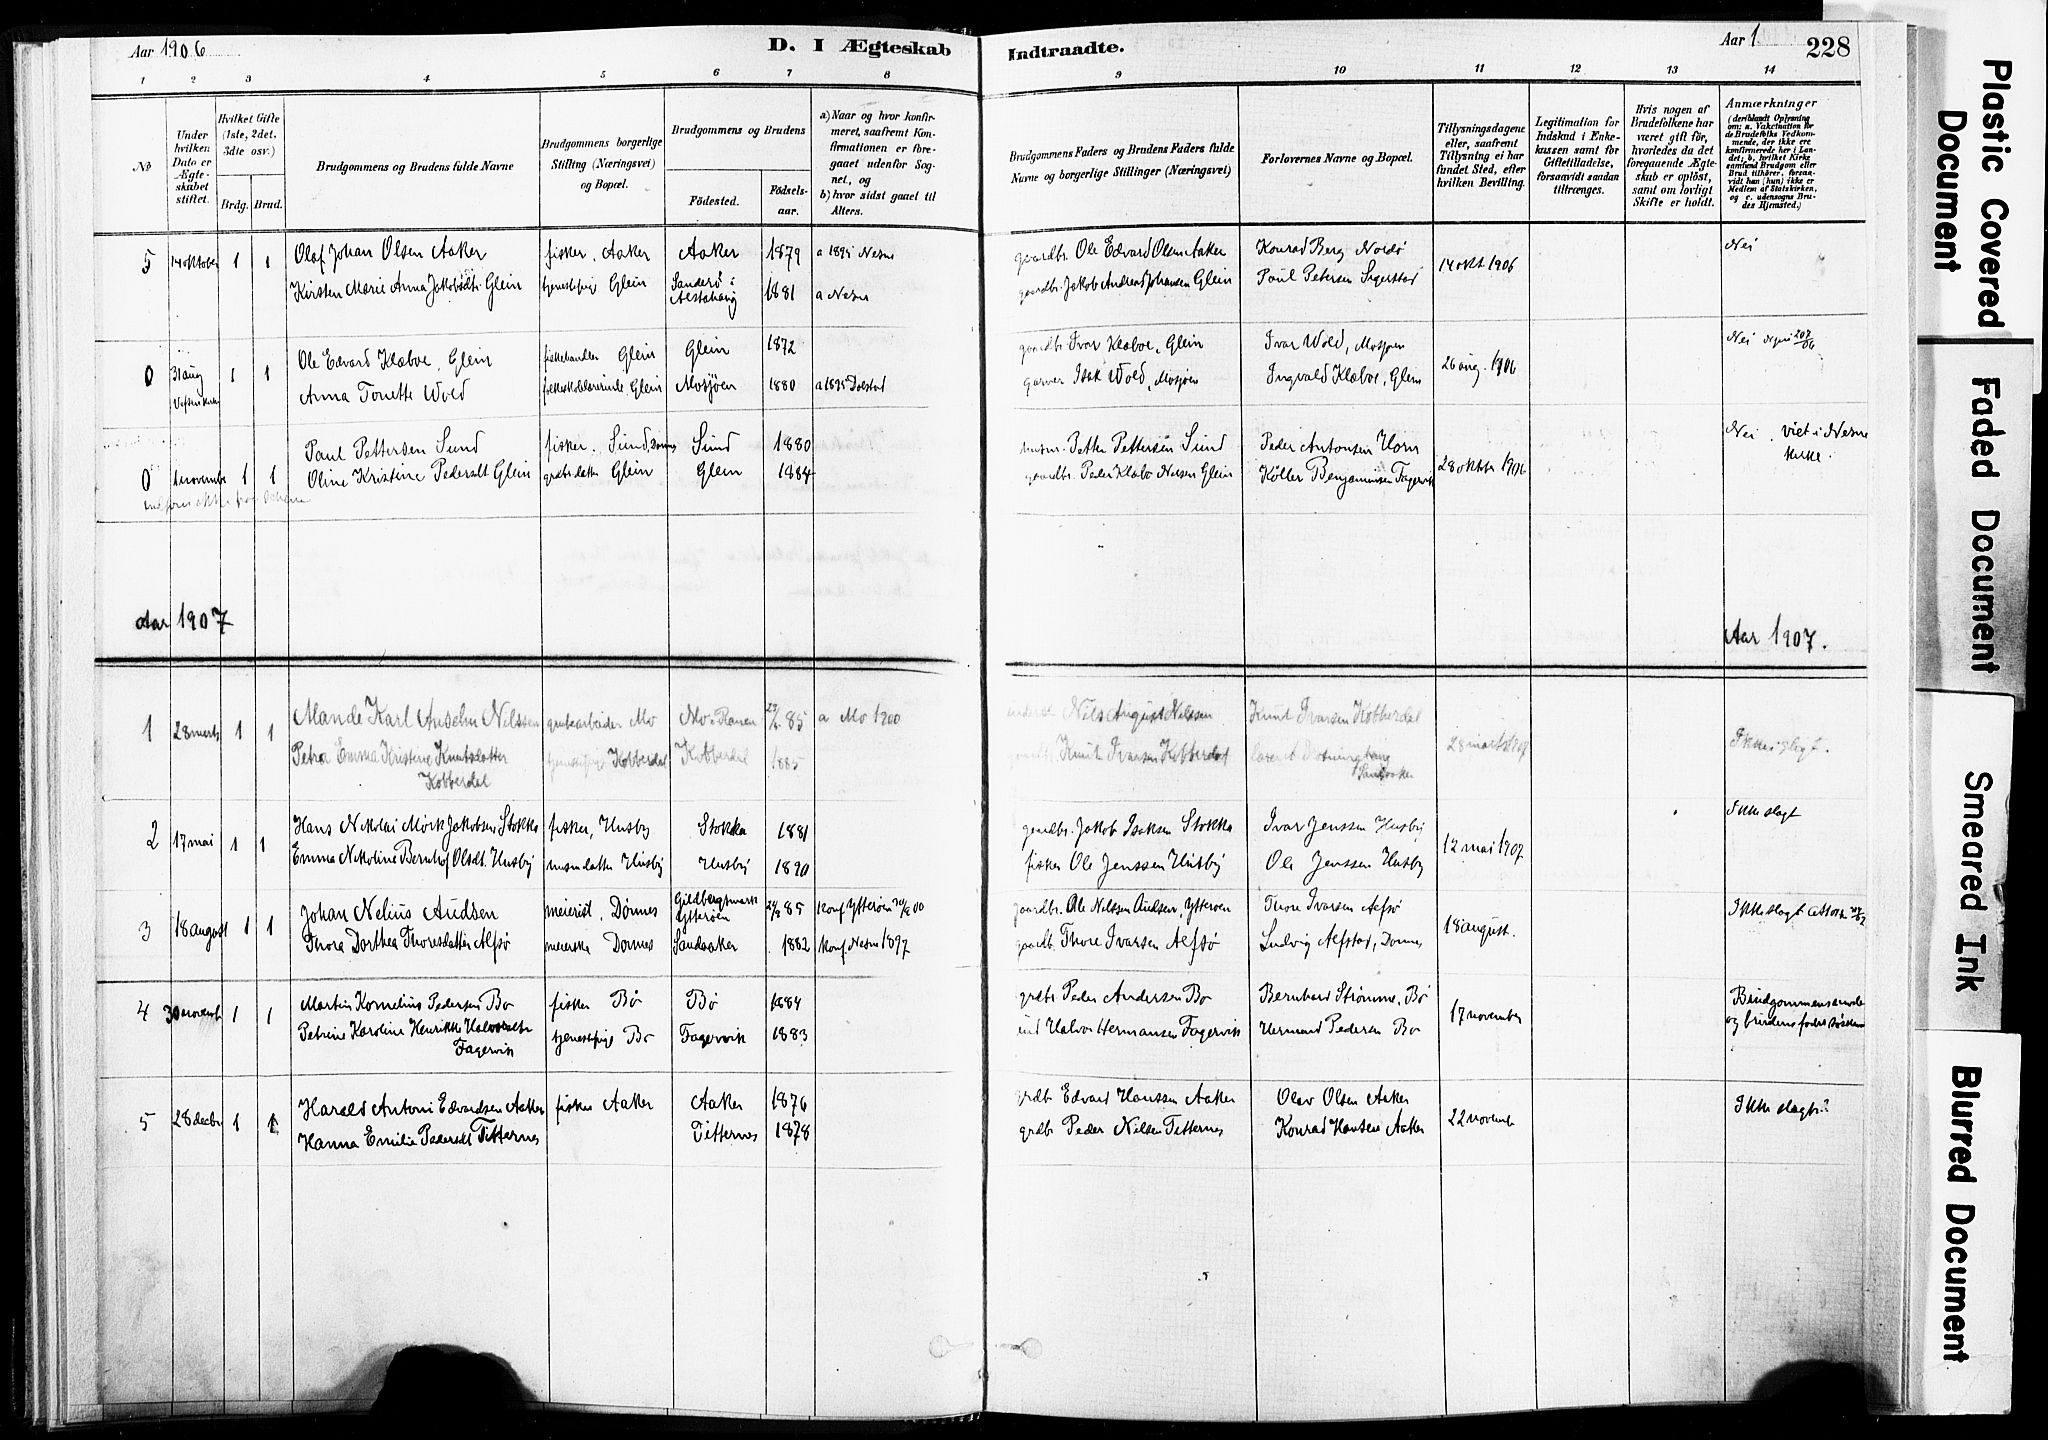 Aar 1906
D. I Ægteskab
Indtraadte.
Aar 1
228
1 2 3 4 5 6 7 8
9 10 11 12 13 14
No
Under hvilken Dato er Ægteskabet stiftet.
Hvilket Gifte (1ste, 2det, 3die osv.)
Brdg. Brud.
Brudgommens og Brudens fulde Navne
Brudgommens borgerlige Stilling (Næringsvei) og Bopæl.
Brudgommens og Brudens
Fødested.
Fødselsaar.
a) Naar og hvor konfirmeret, saafremt Konfirmationen er foregaaet udenfor Sognet, og
b) hvor sidst gaaet til Alters.
Brudgommens Faders og Brudens Faders fulde Navne og borgerlige Stillinger (Næringsvei)
Forlovernes Navne og Bopæl.
Tillysningsdagene eller, saafremt Tillysning ei har fundet Sted, efter hvilken Bevilling.
Legitimation for Indskud i Enkekassen samt for Giftetilladelse, forsaavidt saadan tiltrænges.
Hvis nogen af Brudefolkene har været gift før, hvorledes da det foregaaende Ægteskab er opløst, samt om lovligt Skifte er holdt.
Anmærkninger
(deriblandt Oplysning om: a. Vakcination for de Brudefolks Vedkommende, der ikke ere konfirmerede her i Landet; b. hvilket Kirkesamfund Brudgom eller Brud tilhører, forsaavidt han (hun) ikke er Medlem af Statskirken, og c. udensogns Brudes Hjemsted.)
5 14 oktober 1 1 Olaf Johan Olsen Aaker fisker, Aaker Aaker 1879 a 1895 Nesne gaardbr. Ole Edvard Olsen Aaker Konrad Berg Nordø 14 okt. 1906 Nei
Kirsten Marie Anna Jakobsdtr. Glein tjenestepige Glein Sandesø i Alstahaug 1881 a Nesne gaardbr. Jakob Andreas Johansen Glein Paul Petersen
0 31 aug 1 1 Ole Edvard Klæboe, Glein fiskehandler Glein Glein 1872 gaardbr. Ivar Klæboe, Glein Ivar Wold, Mosjøen 26 aug. 1906 Nei
Anna Tonette Wold Glein Mosjøen 1880 a 1895 Dolstad garver Isak Wold, Mosjøen Ingvald Klæboe, Glein
0 november 1 1 Paul Pettersen Sund fisker, Sund, Dønnes Sund 1880 Petter Pettersen Sund Peder Antonsen Horn 28 oktbr 1906 Nei, viet i Nesne kirke.
Oline Kristine Pedersdt Glein grdbr. datter Glein Glein 1884 gaardbr. Peder Klæbo Glein Køller Benjaminsen Fagervik
Aar 1907
Aar 1907.
1 28 marts 1 1 Mande Karl Anselm Nilssen grubearbeider Mo Mo i Ranen 85 a Mo 1900 Nils August Nilssen Knut Ivarsen Kobberdal 28 marts 1907 Ikke i slegt.
Petra Emma Kristine Knutsdatter Kobberdal tjenestepige Kobberdal Kobberdal 1885 Knut Ivarsen Kobberdal Sandaaker
2 17 mai 1 1 Hans Nikolai Mørk Jakobsen Stokka fisker, Husby Stokka 1881 gaardbr. Jakob Isaksen Stokka Ivar Jenssen Husby 12 mai 1907. Ikke slegt
Emma Nikoline Bernhof Olsdt. Husby Husby Husby 1890 fisker Ole Jenssen Husby Ole Jenssen Husby
3 18 august 1 1 Johan Nelius Audsen meierist, Dønnes Ytterøen 85 Konf Ytterøen 00 gaardbr. Ole Nilssen Audsen, Ytterøen Thore Ivarsen Alfsø 18 august. Ikke slegt
Thora Dorthea Thoresdatter Alfsø meierske Dønnes Sandaaker 1882 Konf. Nesne 1897 gaardb. Thore Ivarsen Alfsø Ludvig Alfstad, Dønnes
4 30 novemb 1 1 Martin Kornelius Pedersen Bø fisker Bø Bø 1884 grdbr. Peder Andersen Bø Bernhard Strømme, Bø 17 november Brudgommens mor og brudens far søsken
Petrine Karoline Henrikke Halvorsdtr Fagervik tjenestepige Bø Fagervik 1883 Halvor Hermansen Fagervik Herman Pedersen Bø
5 28 decbr 1 1 Harald Antoni Edvardsen Aaker fisker Aaker Aaker 1876 grdbr Edvard Hanssen Aaker Olav Olsen Aaker 22 novemb Ikke slegt?
Hanna Emilie Pedersdt Titternes Titternes 1878 grdbr Peder Nilsen Titternes Konrad Hansen Aaker
Plastic Covered Document
Faded Document
Smeared Ink
Blurred Document